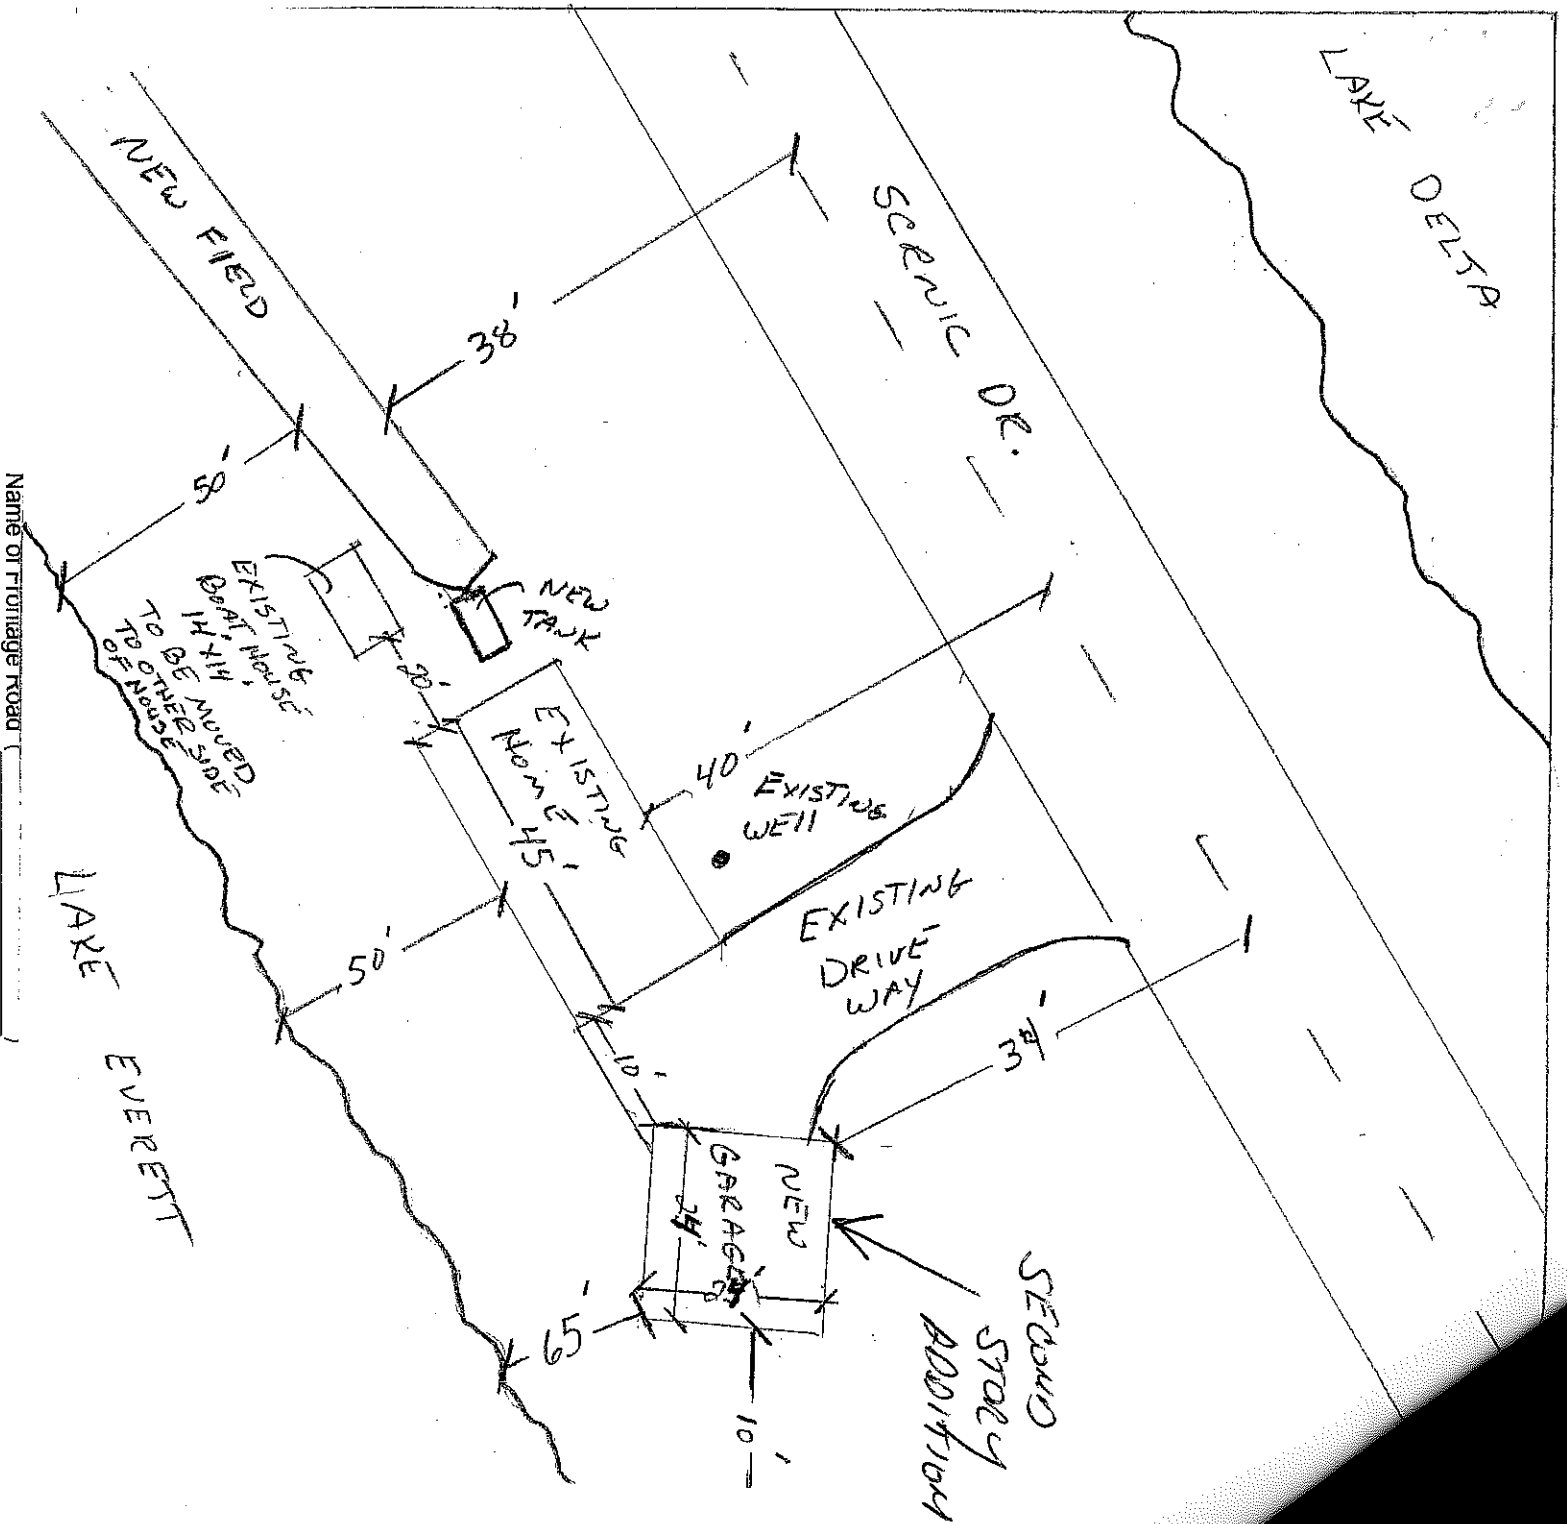 LAKE DELTA
SCRNIC DR.
NEW FIELD
38'
50'
NEW
TANK
EXISTING
BOAT HOUSE
14'X14'
TO BE MOVED
TO OTHER SIDE
OF HOUSE
20'
EXISTING
HOME
45'
40'
EXISTING
WELL
EXISTING
DRIVE
WAY
50'
10'
34'
NEW
GARAGE
24'
65'
10'
SECOND
STORY
ADDITION
LAKE EVERETT
Name of Frontage Road ( )